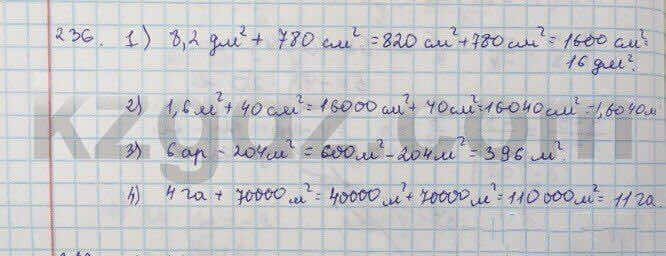 236. 1) 8,2 дм² + 780 см² = 820 см² + 780 см² = 1600 см² =
16 дм².
2) 1,6 м² + 40 см² = 16000 см² + 40 см² = 16040 см² = 1,6040 м
3) 6 ар - 204 м² = 600 м² - 204 м² = 396 м²
4) 4 га + 70000 м² = 40000 м² + 70000 м² = 110 000 м² = 11 га.
kzgdz.com